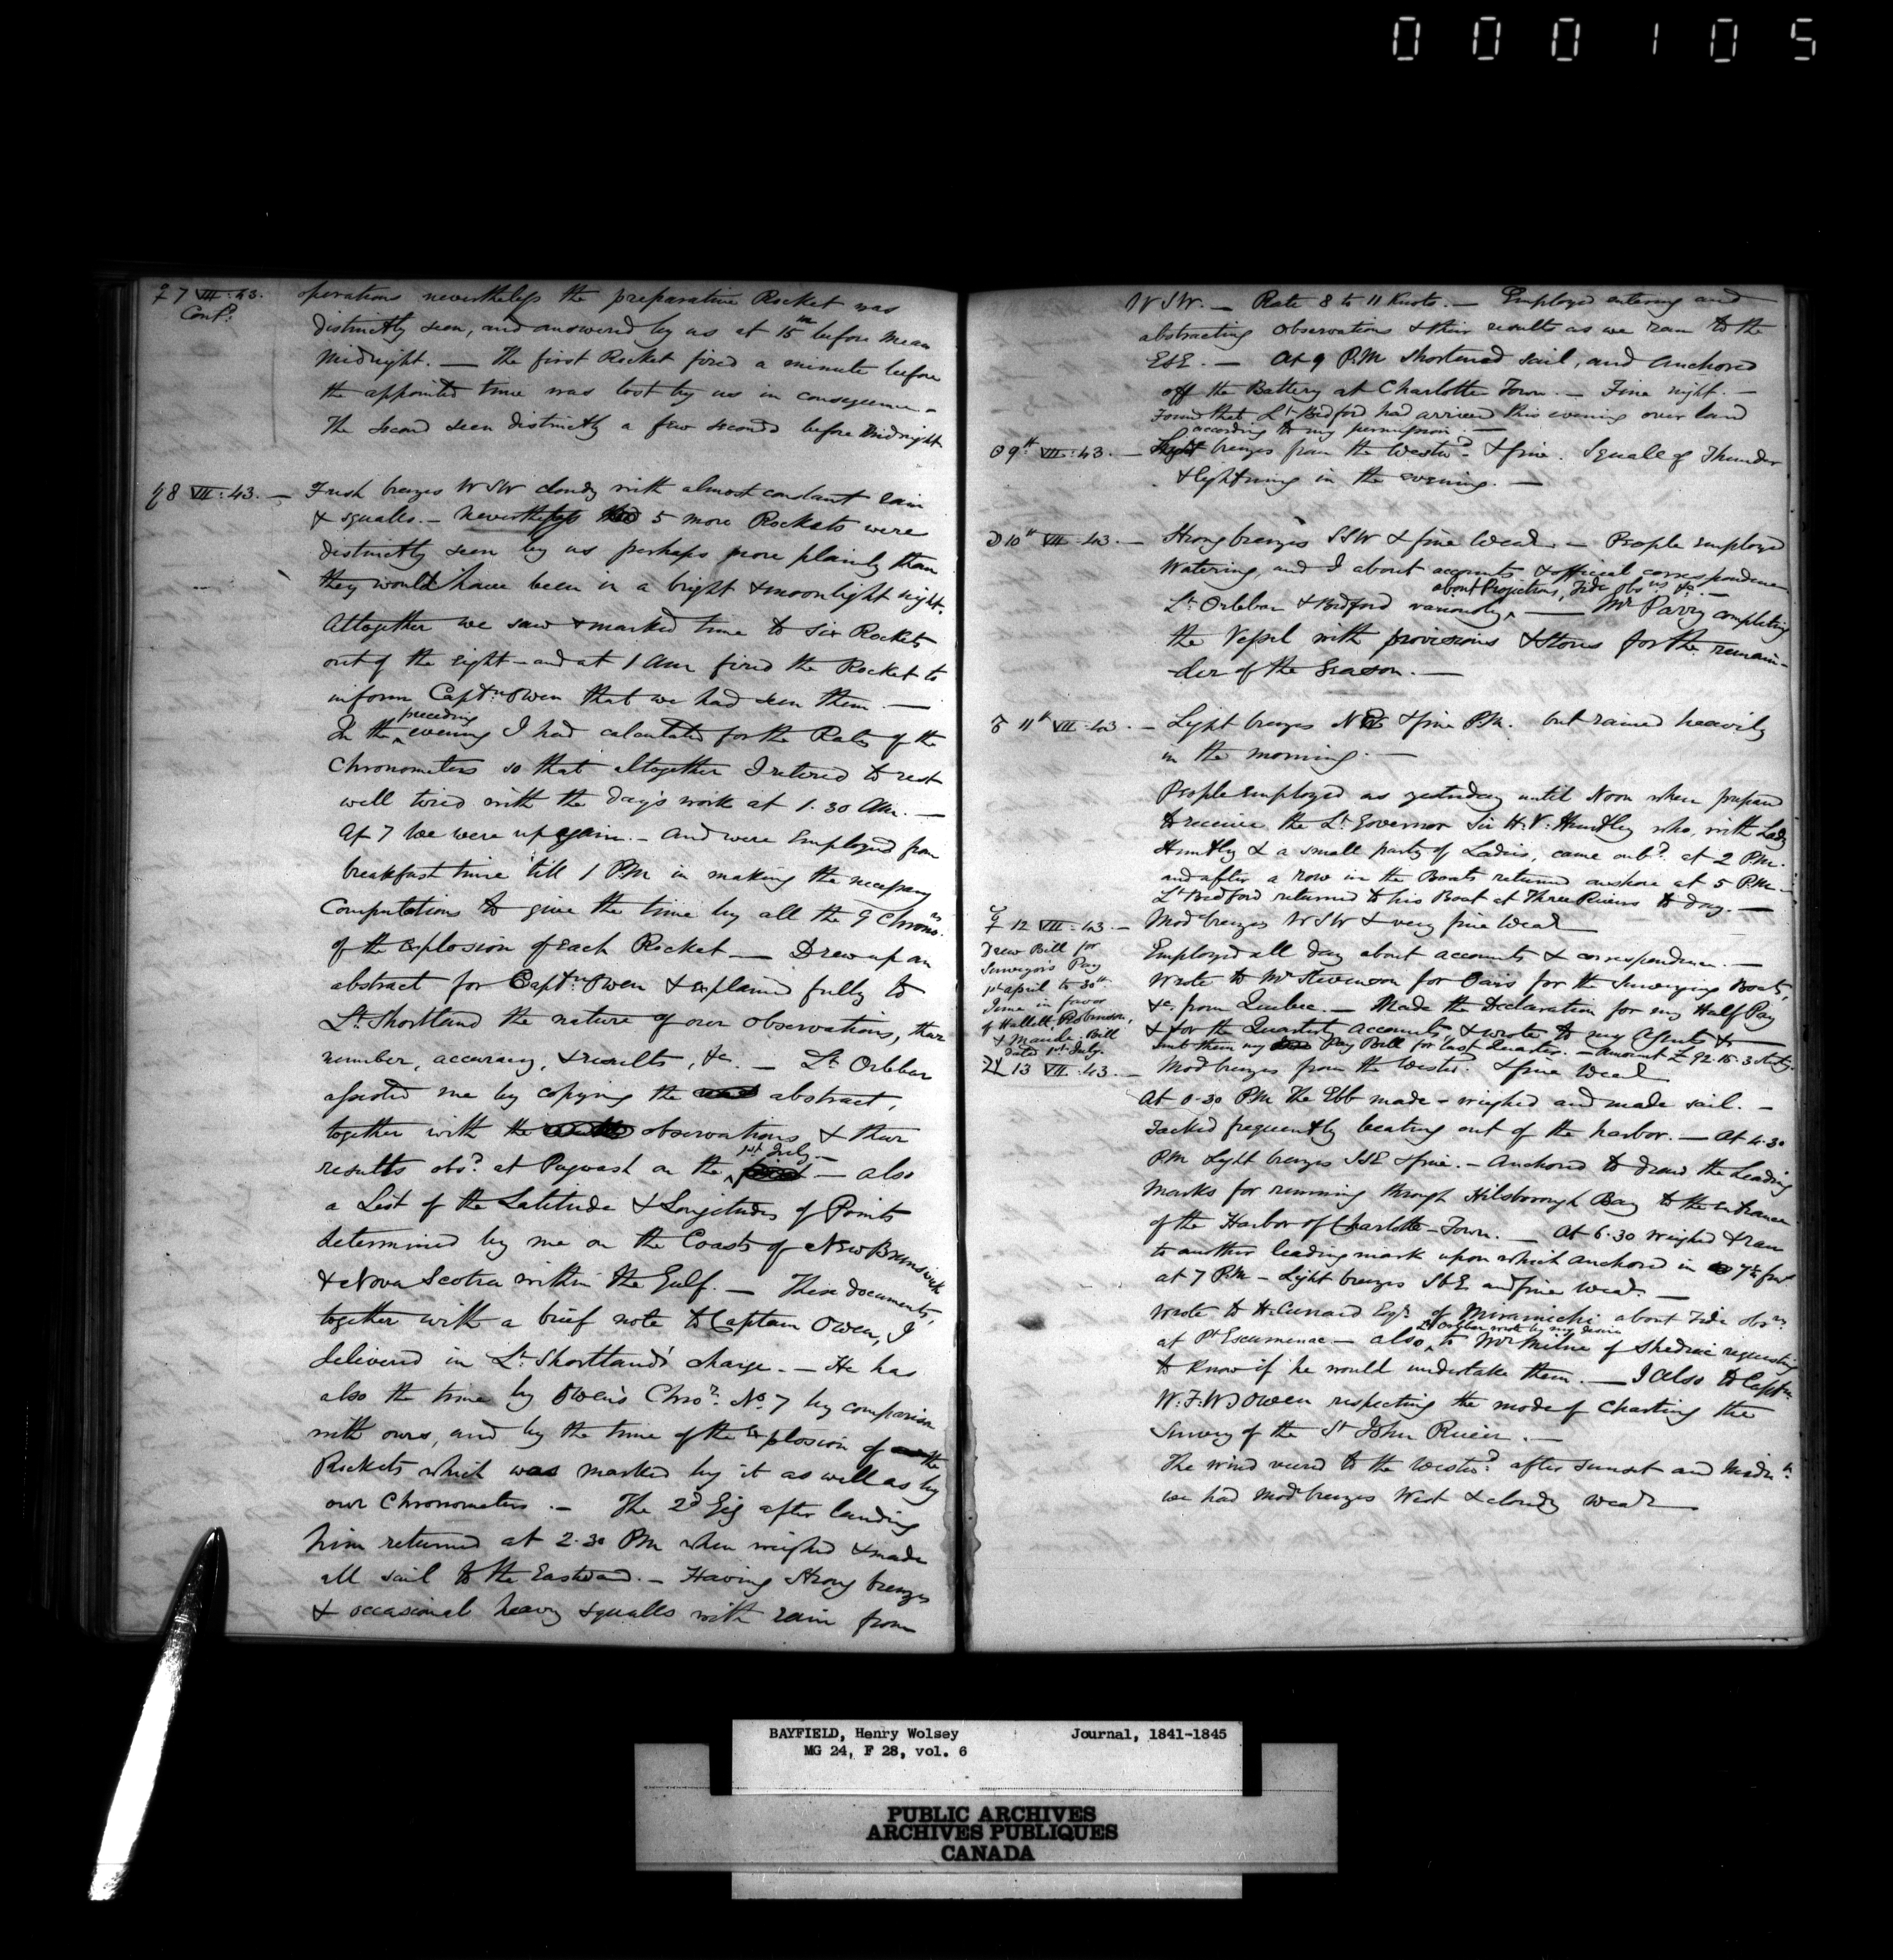 000105
♀ 7 VII:43.
Contd.
operations nevertheless the preparative Rocket was
distinctly seen, and answered by us at 15m before Mean
Midnight. — The first Rocket fired a minute before
the appointed time was lost by us in consequence
The second seen distinctly a few seconds before Midnight
♄ 8 VII:43. — Fresh breezes WSW cloudy with almost constant rain
& squalls. — Nevertheless 5 more Rockets were
distinctly seen by us perhaps more plainly than
they would have been in a bright & moonlight night.
Altogether we saw & marked time to six Rockets
out of the eight — and at 1 AM fired the Rocket to
inform Captn Owen that we had seen them. —
In the preceding evening I had calculated for the Rates of the
Chronometers so that altogether I retired to rest
well tired with the day's work at 1.30 AM. —
At 7 we were up again. — And were Employed from
breakfast time till 1 PM in making the necessary
Computations to give the time by all the 9 Chronrs.
of the explosion of each Rocket — Drew up an
abstract for Captn Owen & explained fully to
Lt. Shortland the nature of our observations, their
number, accuracy, & results, &c. — Lt. Orlebar
assisted me by copying the abstract,
together with the observations & their
results obsd. at Pugwash on the 1st July — also
a List of the Latitude & Longitudes of Points
determined by me on the Coasts of New Brunswick
& Nova Scotia within the Gulf. — These documents,
together with a brief note to Captain Owen, I
delivered in Lt. Shortland's charge. — He has
also the time by Owen's Chror. No. 7 by comparison
with ours, and by the time of the explosion of the
Rockets which was marked by it as well as by
our Chronometers. — The 2d Gig after landing
him returned at 2.30 PM when weighed & made
all sail to the Eastward. — Having strong breezes
& occasional heavy squalls with rain from
WSW. — Rate 8 to 11 Knots. — Employed entering and
abstracting observations & their results as we ran to the
ESE. — At 9 P.M shortened sail, and anchored
off the Battery at Charlotte Town. — Fine night. —
Found that Lt. Bedford had arrived this evening over land
according to my permission. —
☉ 9th VII:43. — Light breezes from the Westwd. & fine. Squall of Thunder
& lightning in the evening. —
☽ 10th VII:43. — Strong breezes SSW & fine Weathr. — People employed
Watering, and I about accounts & official correspondence
about Projections, Tide Obsns &c. —
Lt. Orlebar & Bedford variously — Mr Parry completing
the Vessel with provisions & Stores for the remain-
-der of the Season. —
♂ 11th VII:43. — Light breezes & fine P.M. but rained heavily
in the morning. —
People Employed as yesterday until Noon when prepared
to receive the Lt. Governor Sir H.V. Huntley who, with Lady
Huntley & a small party of Ladies, came onbd. at 2 P.M.
and after a row in the Boats returned onshore at 5 P.M. —
Lt. Bedford returned to his Boat at Three Rivers to day. —
☿ 12 VII:43. — Mod breezes WSW & very fine Weathr
Drew Bill for
Surveyors Pay
1st April to 30th
June in favor
of Hallett, Robinson,
& Maude. Bill
dated 1st July.
Employed all day about accounts & correspondence. —
Wrote to Mr Stevenson for Oars for the Surveying Boats,
&c. from Quebec. — Made the Declaration for my Half Pay
& for the Quarterly accounts, & wrote to my Agents &
sent them my Pay Bill for last Quarter. — Amount £92.15.3 Sterlg.
♃ 13 VII:43. — Mod breezes from the Westwd. & fine Weathr
At 0.30 PM The Ebb made — weighed and made sail. —
Tacked frequently beating out of the harbor. — At 4.30
PM Light breezes SSE & fine. — Anchored to draw the Leading
Marks for running through Hilsborough Bay to the entrance
of the Harbor of Charlotte-Town. — At 6.30 weighed & ran
to another leading mark upon which anchored in
at 7 P.M — Light breezes SbE and fine Weathr. —
Wrote to H. Cunard Esqr. of Miramichi about Tide obsns.
Lt Orlebar wrote by my desire
at Pt Escumenac — also to Mr Milne of Shediac requesting
to know if he would undertake them. — I also to Captn.
W.F.W. Owen respecting the mode of Charting the
Survey of the St John River. —
The wind veered to the Westwd. after sunset and Midnt.
we had Mod breezes West & cloudy Weathr
BAYFIELD, Henry Wolsey Journal, 1841-1845
MG 24, F 28, vol. 6
PUBLIC ARCHIVES
ARCHIVES PUBLIQUES
CANADA